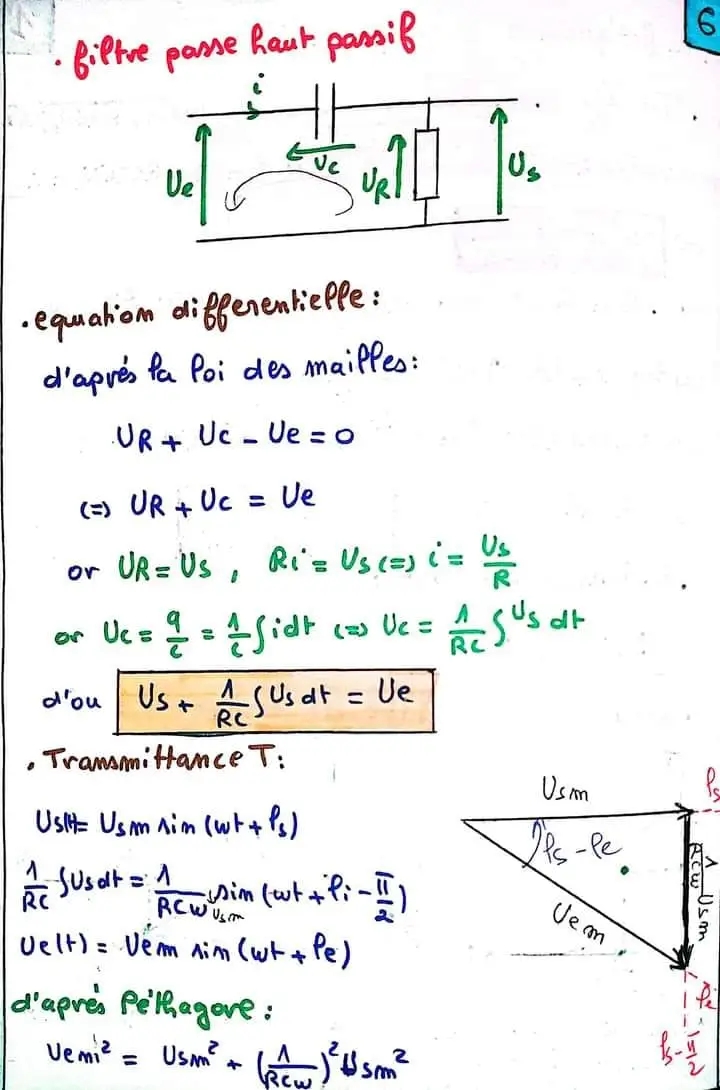 6
. filtre passe haut passif
i
Ue
Uc
UR
Us
. equation differentielle :
d'aprés la loi des mailles :
UR + Uc - Ue = 0
(=) UR + Uc = Ue
or UR = Us , Ri = Us (=) i = Us/R
or Uc = q/c = 1/c ∫idt (=) Uc = 1/RC ∫Us dt
d'ou Us + 1/RC ∫Us dt = Ue
. Transmittance T :
Us(t) = Usm sin (wt + φs)
1/RC ∫Us dt = 1/RCw Usm sin (wt + φi - π/2)
Ue(t) = Uem sin (wt + φe)
d'aprés Péthagore :
Uem² = Usm² + (1/RCw)² Usm²
Usm
φs
φs - φe
1/RCw Usm
Uem
φe
φs - π/2